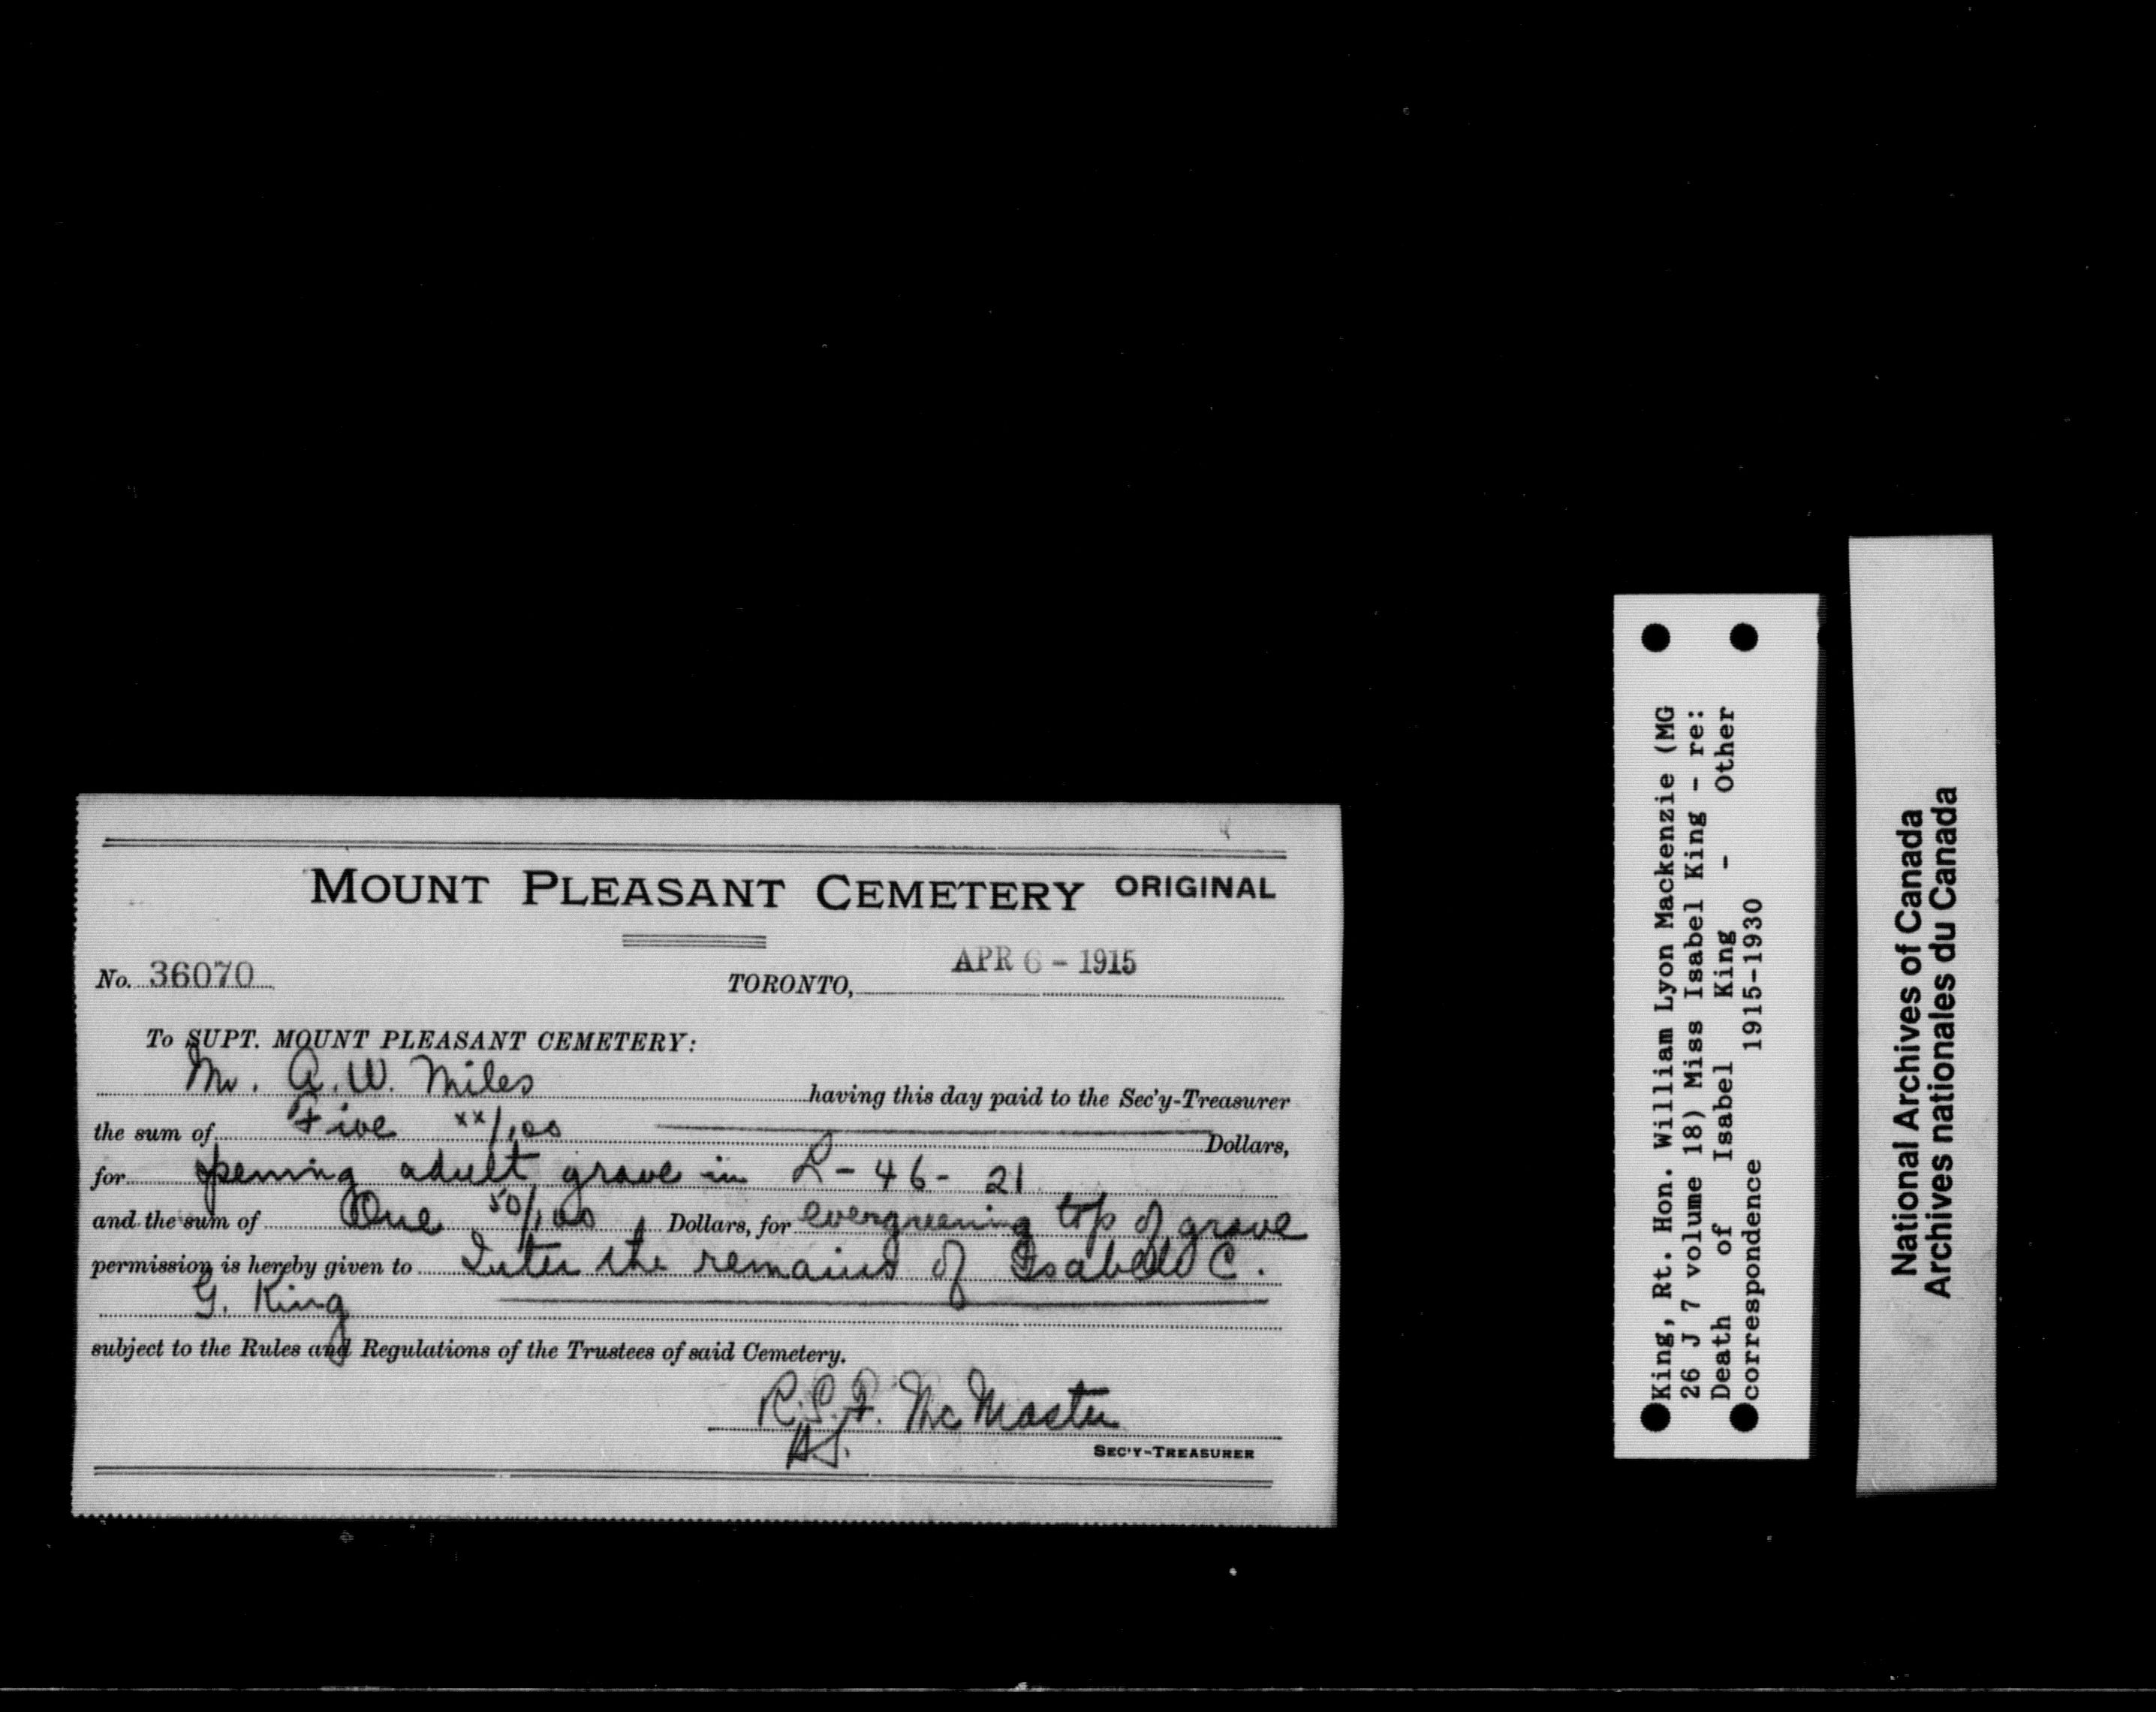 MOUNT PLEASANT CEMETERY ORIGINAL
No. 36070
TORONTO, APR 6 - 1915
To SUPT. MOUNT PLEASANT CEMETERY:
Mr. A. W. Miles having this day paid to the Sec'y-Treasurer
the sum of Five xx/100 Dollars,
for opening adult grave in L - 46 - 21
and the sum of One 50/100 Dollars, for evergreening top of grave
permission is hereby given to Inter the remains of Isabel C.
G. King
subject to the Rules and Regulations of the Trustees of said Cemetery.
McMaster
SEC'Y-TREASURER
King, Rt. Hon. William Lyon Mackenzie (MG
26 J 7 volume 18) Miss Isabel King - re:
Death of Isabel King - Other
correspondence 1915-1930
National Archives of Canada
Archives nationales du Canada